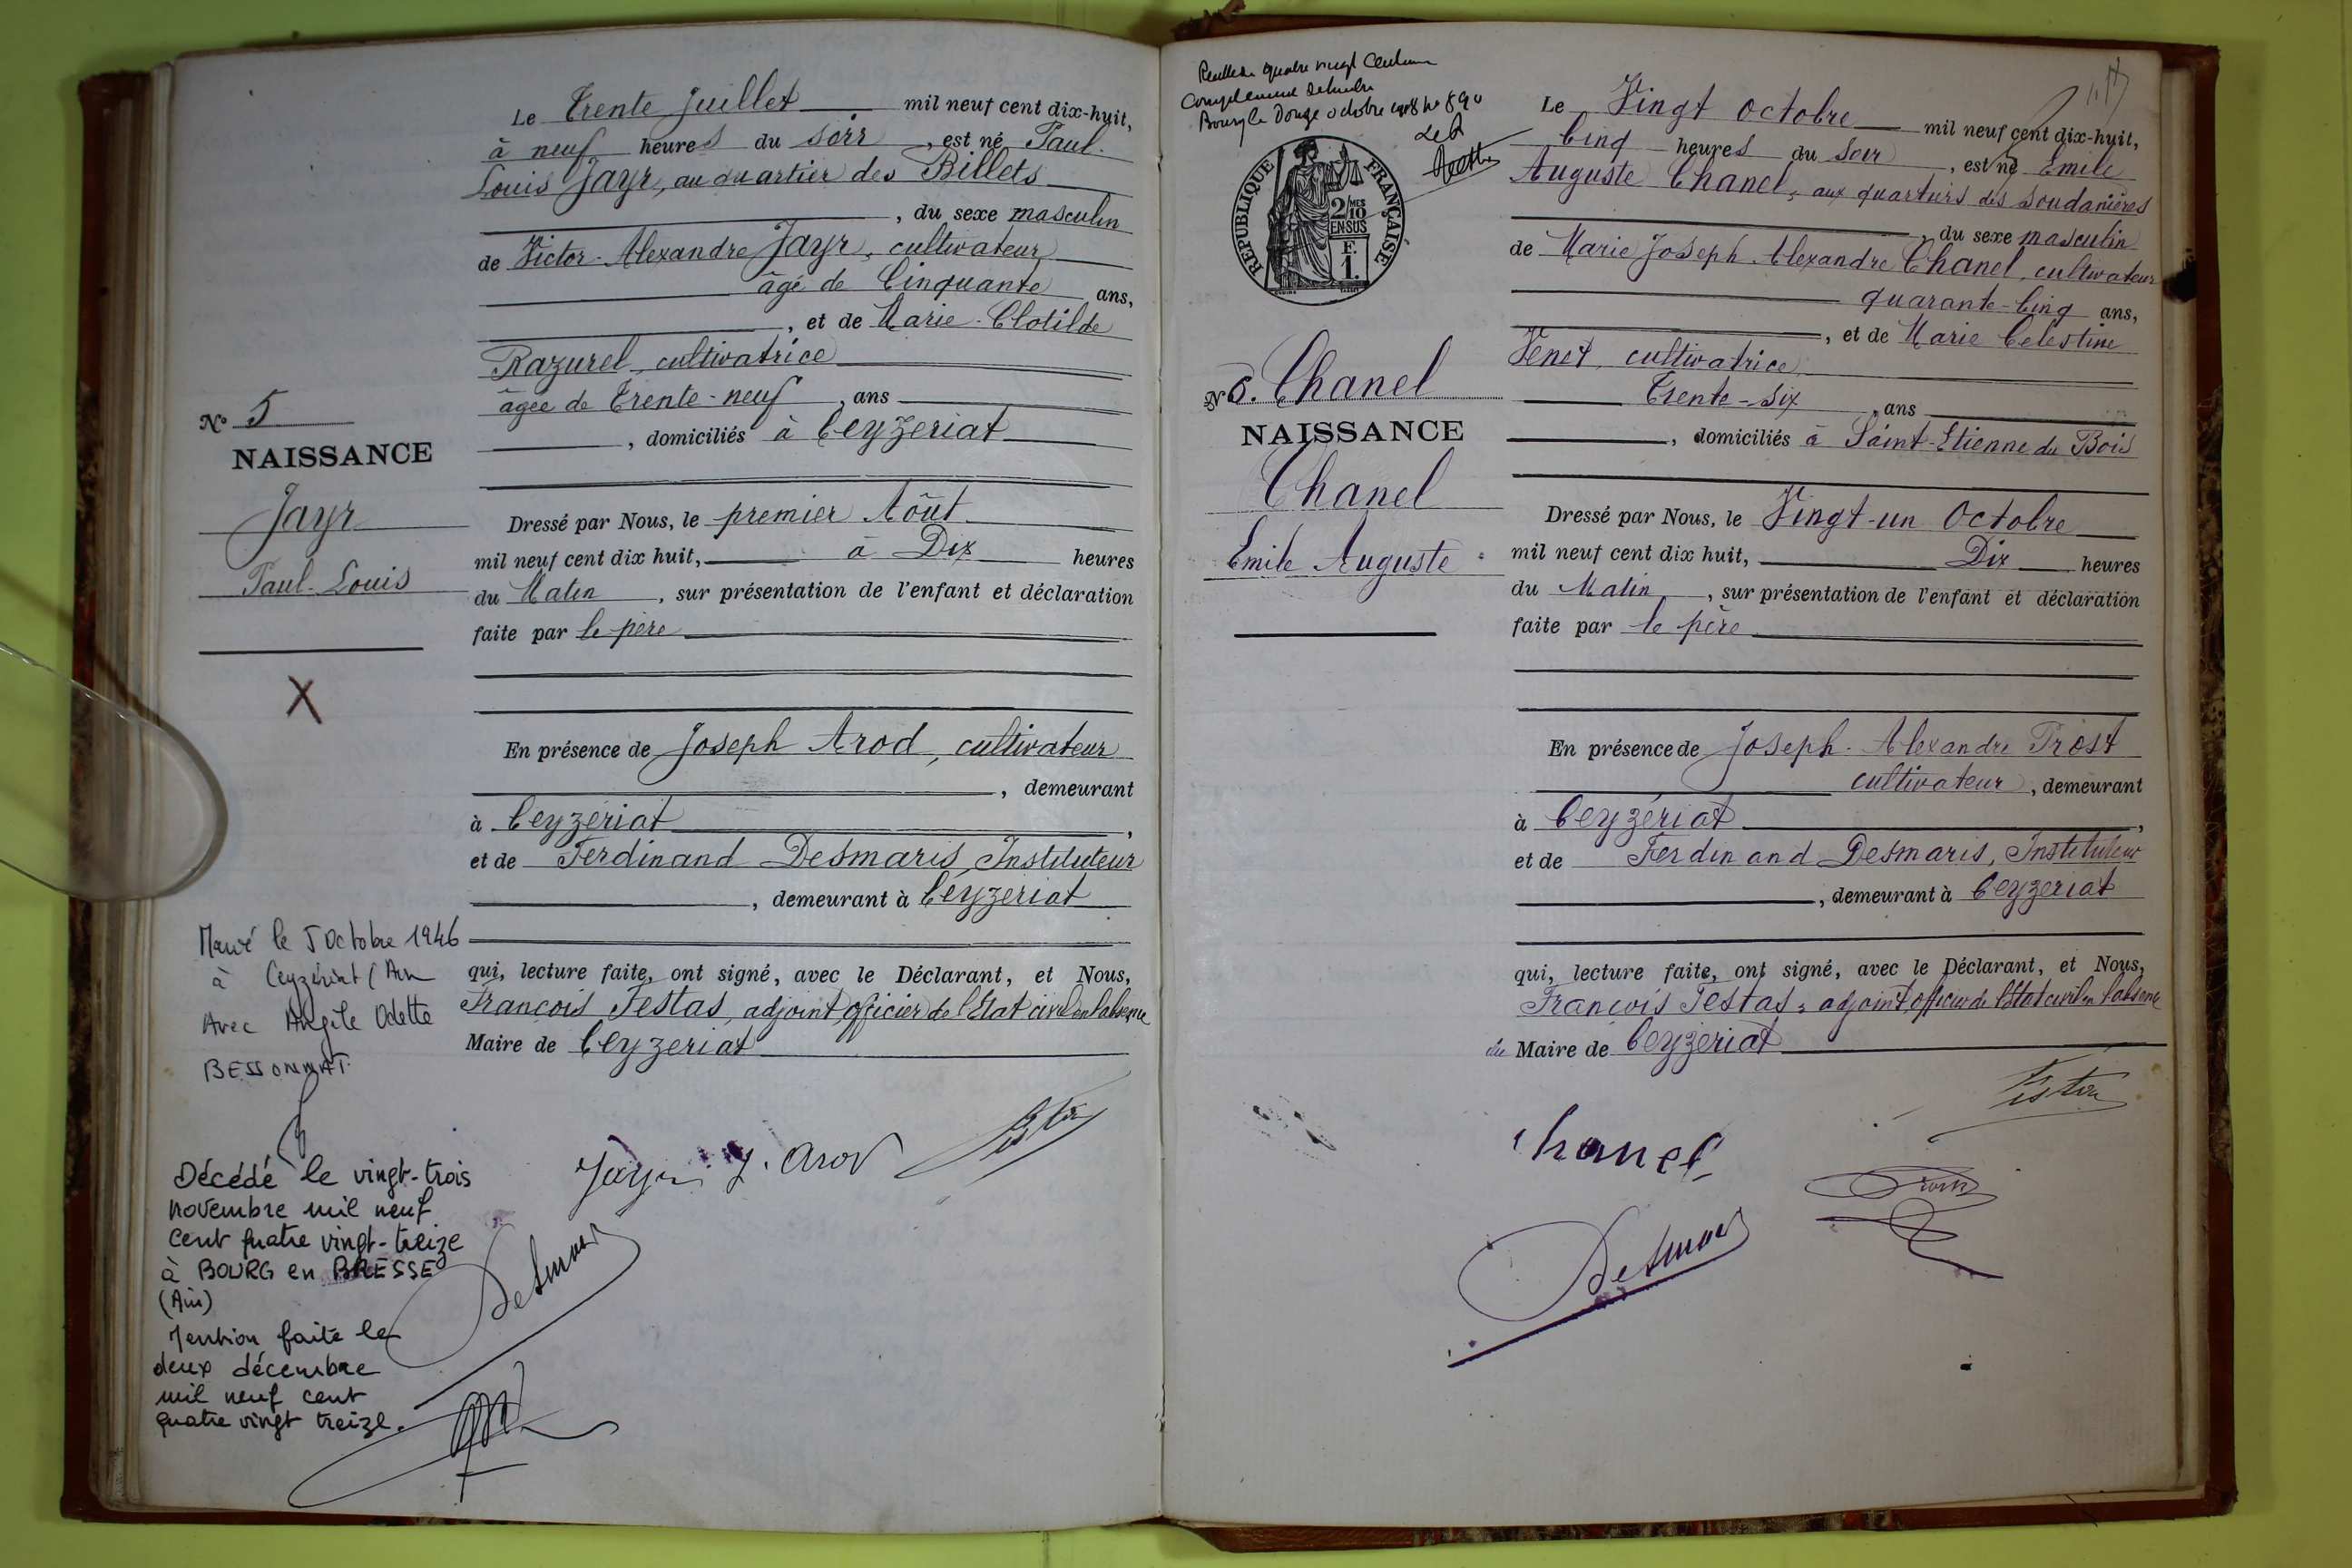 Le Trente Juillet mil neuf cent dix-huit,
à neuf heures du soir, est né Paul
Louis Jayr, au quartier des Billets
, du sexe masculin
de Victor-Alexandre Jayr, cultivateur
âgé de Cinquante ans,
, et de Marie-Clotilde
Razurel, cultivatrice
âgée de Trente-neuf, ans
, domiciliés à Ceyzeriat
Nº 5
NAISSANCE
Jayr
Paul-Louis
X
Dressé par Nous, le premier Aôut
mil neuf cent dix huit, à Dix heures
du Matin, sur présentation de l'enfant et déclaration
faite par le père
En présence de Joseph Arod, cultivateur
, demeurant
à Ceyzériat,
et de Ferdinand Desmaris, Instituteur
, demeurant à Céyzeriat
qui, lecture faite, ont signé, avec le Déclarant, et Nous,
François Festas, adjoint, officier de l'Etat civil en l'absence
Maire de Ceyzeriat
Marié le 5 Octobre 1946
à Ceyzériat (Ain
Avec Angèle Odette
BESSONNAT
Décédé le vingt-trois
novembre mil neuf
cent quatre vingt-treize
à BOURG en BRESSE
(Ain)
Mention faite le
deux décembre
mil neuf cent
quatre vingt treize.
Jayr J. Arod
Desmaris
quatre vingt Centimes
Bourg le Douze octobre 1918 nº 890
RÉPUBLIQUE FRANÇAISE
2/10 MES
EN SUS
F.
1.
Nº 6. Chanel
NAISSANCE
Chanel
Emile Auguste
Le Vingt Octobre mil neuf cent dix-huit,
Cinq heures du soir, est né Emile
Auguste Chanel, aux quartiers des Soudanières
, du sexe masculin
de Marie Joseph Alexandre Chanel, cultivateur
quarante-cinq ans,
, et de Marie Celestine
Venet, cultivatrice
Trente-six, ans
, domiciliés à Saint-Etienne du Bois
Dressé par Nous, le Vingt-un Octobre
mil neuf cent dix huit, Dix heures
du Matin, sur présentation de l'enfant et déclaration
faite par le père
En présence de Joseph-Alexandre Prost
cultivateur, demeurant
à Ceyzériat,
et de Ferdinand Desmaris, Instituteur
, demeurant à Ceyzeriat
qui, lecture faite, ont signé, avec le Déclarant, et Nous,
François Festas, adjoint, officier de l'Etat civil en l'absence
du Maire de Ceyzériat
Chanel
Desmaris